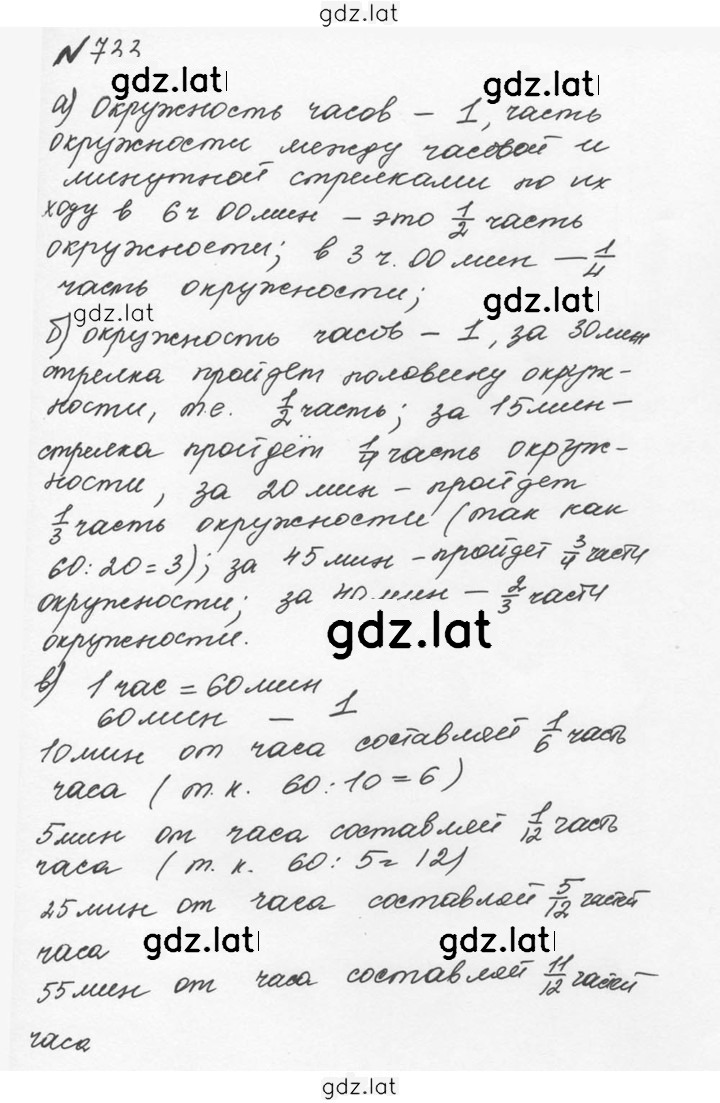 gdz.lat
№ 722
gdz.lat gdz.lat
а) Окружность часов – 1, часть
окружности между часовой и
минутной стрелками по их
ходу в 6 ч 00 мин – это 1/2 часть
окружности; в 3 ч. 00 мин – 1/4
часть окружности;
gdz.lat gdz.lat
б) окружность часов – 1, за 30 мин
стрелка пройдет половину окруж-
ности, т.е. 1/2 часть; за 15 мин –
стрелка пройдёт 1/4 часть окруж-
ности, за 20 мин – пройдет
1/3 часть окружности (так как
60:20=3); за 45 мин – пройдет 3/4 части
окружности; за 40 мин – 2/3 части
окружности.
gdz.lat
в) 1 час = 60 мин
60 мин – 1
10 мин от часа составляет 1/6 часть
часа (т.к. 60:10=6)
5 мин от часа составляет 1/12 часть
часа (т.к. 60:5=12)
25 мин от часа составляет 5/12 частей
часа
gdz.lat gdz.lat
55 мин от часа составляет 11/12 частей
часа
gdz.lat